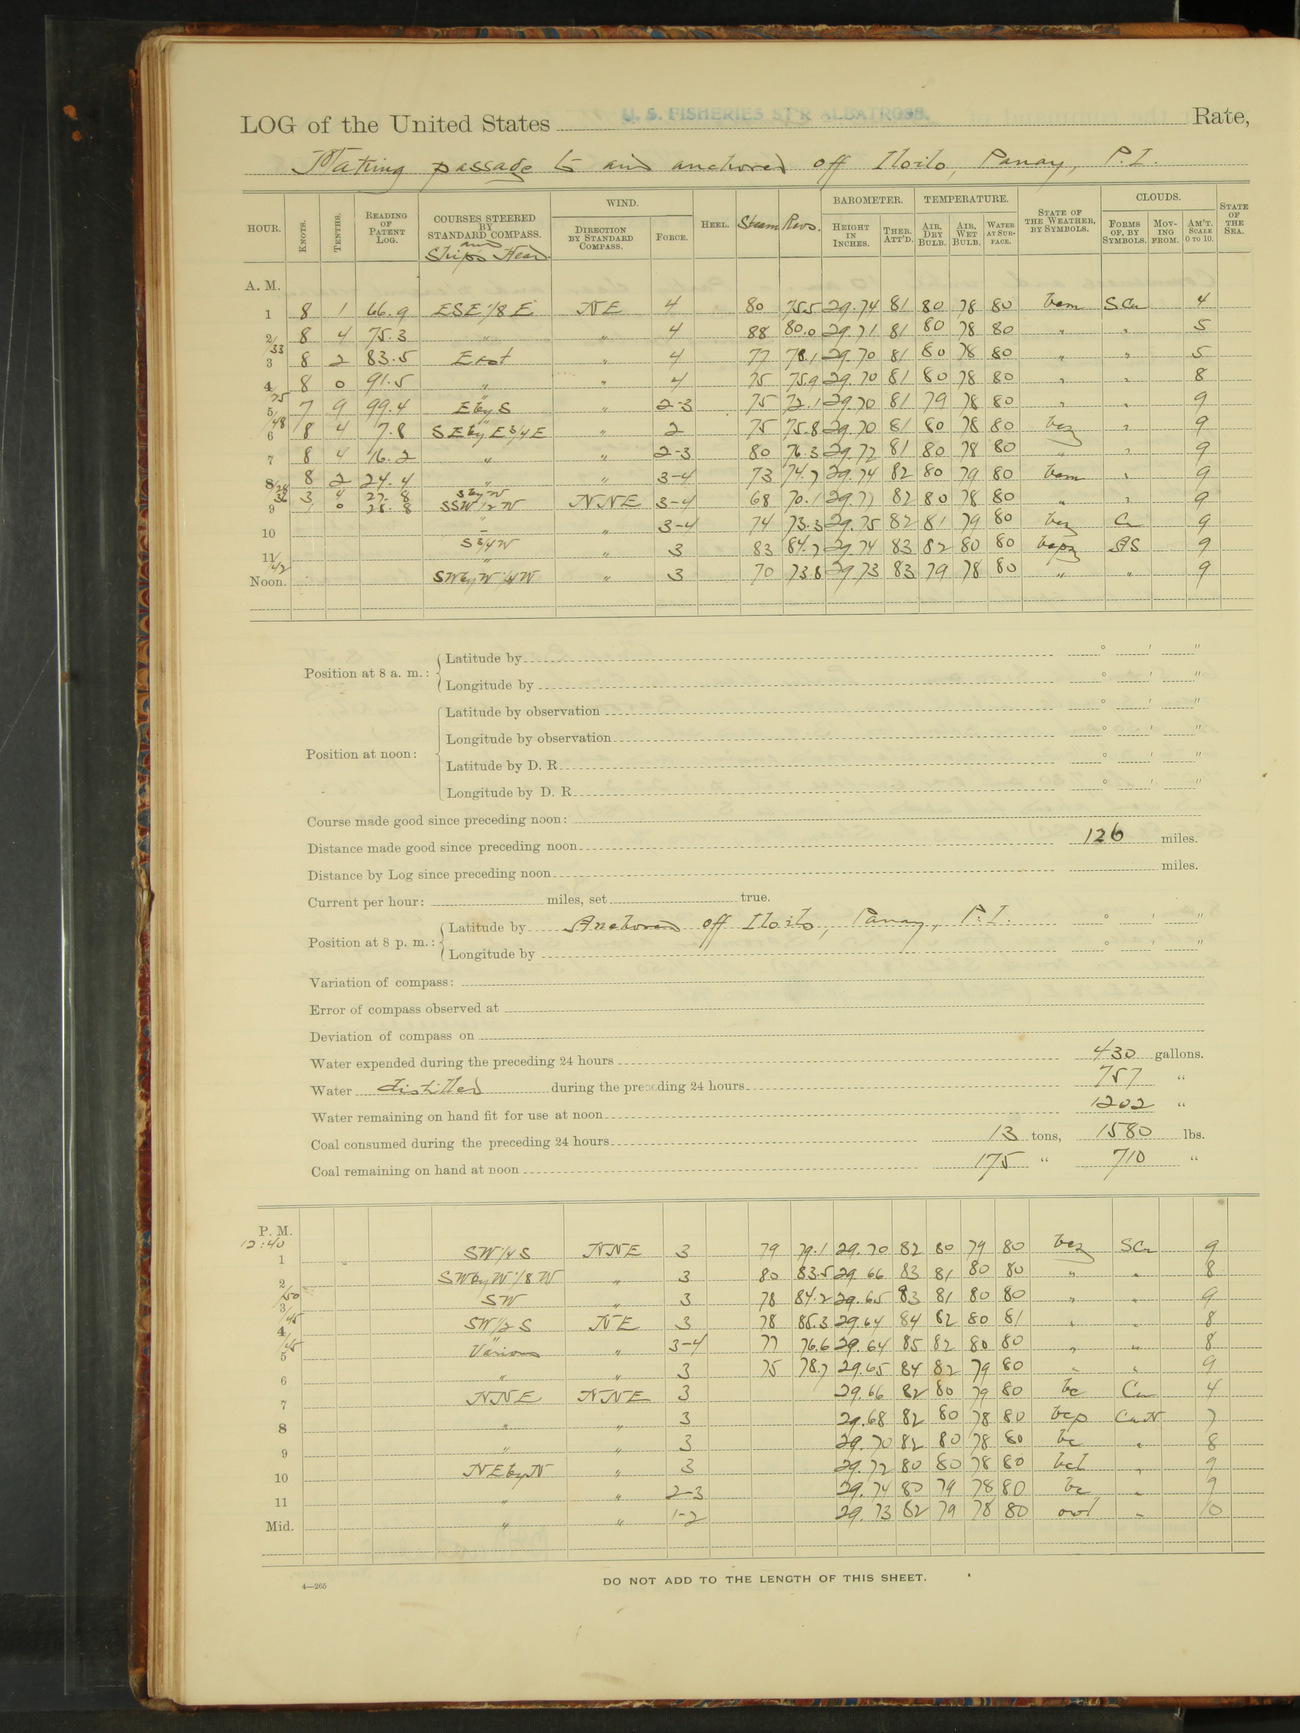 LOG of the United States U. S. FISHERIES ST'R ALBATROSS. Rate,
Making passage to and anchored off Iloilo, Panay, P.I.
HOUR. KNOTS. TENTHS. READING OF PATENT LOG. COURSES STEERED BY STANDARD COMPASS. and Ship's Head WIND. DIRECTION BY STANDARD COMPASS. FORCE. HEEL. Steam Revs. BAROMETER. HEIGHT IN INCHES. THER. ATT'D. TEMPERATURE. AIR, DRY BULB. AIR, WET BULB. WATER AT SURFACE. STATE OF THE WEATHER, BY SYMBOLS. CLOUDS. FORMS OF, BY SYMBOLS. MOVING FROM. AM'T. SCALE 0 TO 10. STATE OF THE SEA.
A. M.
1 8 1 66.9 ESE 1/8 E NE 4 80 75.5 29.74 81 80 78 80 bcm S.Cu 4
2 8 4 75.3 " " 4 88 80.0 29.71 81 80 78 80 " " 5
/33
3 8 2 83.5 East " 4 77 78.1 29.70 81 80 78 80 " " 5
4 8 0 91.5 " " 4 75 75.9 29.70 81 80 78 80 " " 8
5 7 9 99.4 E by S " 2-3 75 72.1 29.70 81 79 78 80 " " 9
/48
6 8 4 7.8 SE by E 3/4 E " 2 75 75.8 29.70 81 80 78 80 bcz " 9
7 8 4 16.2 " " 2-3 80 76.3 29.72 81 80 78 80 " " 9
8 8 2 24.4 " " 3-4 73 74.7 29.74 82 80 79 80 bcm " 9
9 3 4 27.8 S by W SSW 1/2 W NNE 3-4 68 70.1 29.77 82 80 78 80 " " 9
1 0 28.8
10 " " 3-4 74 73.3 29.75 82 81 79 80 bcz Cu 9
11 S 3/4 W " 3 83 84.7 29.74 83 82 80 80 bcpz AS 9
/42
Noon. SW by W 1/4 W " 3 70 73.8 29.73 83 79 78 80 " " 9
Position at 8 a. m.: Latitude by ° ' "
Longitude by ° ' "
Position at noon: Latitude by observation ° ' "
Longitude by observation ° ' "
Latitude by D. R. ° ' "
Longitude by D. R. ° ' "
Course made good since preceding noon:
Distance made good since preceding noon 126 miles.
Distance by Log since preceding noon miles.
Current per hour: miles, set true.
Position at 8 p. m.: Latitude by Anchored off Iloilo, Panay, P.I. ° ' "
Longitude by ° ' "
Variation of compass:
Error of compass observed at
Deviation of compass on
Water expended during the preceding 24 hours 430 gallons.
Water distilled during the preceding 24 hours 757 "
Water remaining on hand fit for use at noon 1202 "
Coal consumed during the preceding 24 hours 13 tons, 1580 lbs.
Coal remaining on hand at noon 175 " 710 "
P. M.
12:40
1 SW 1/4 S NNE 3 79 79.1 29.70 82 80 79 80 bcz SCu 9
2 SW by W 1/8 W " 3 80 83.5 29.66 83 81 80 80 " " 8
/50
3 SW " 3 78 84.2 29.65 83 81 80 80 " " 9
/45
4 SW 1/2 S NE 3 78 85.3 29.64 84 82 80 81 " " 8
/45
5 Various " 3-4 77 76.6 29.64 85 82 80 80 " " 8
6 " " 3 75 78.7 29.65 84 82 79 80 " " 9
7 NNE NNE 3 29.66 82 80 79 80 bc Cu 4
8 " " 3 29.68 82 80 78 80 bcp CuN 7
9 " " 3 29.70 82 80 78 80 bc " 8
10 NE by N " 3 29.72 80 80 78 80 bcl " 9
11 " " 2-3 29.74 80 79 78 80 bc " 9
Mid. " " 1-2 29.73 82 79 78 80 " 10
4—265
DO NOT ADD TO THE LENGTH OF THIS SHEET.